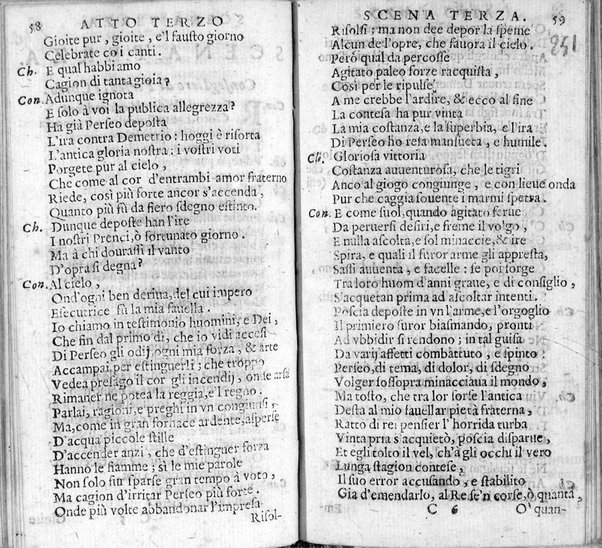 58 ATTO TERZO
Gioite pur, gioite, e'l fausto giorno
Celebrate co i canti.
Ch. E qual habbiamo
Cagion di tanta gioia?
Con. Adunque ignota
E solo à voi la publica allegrezza?
Ha già Perseo deposta
L'ira contra Demetrio: hoggi è risorta
L'antica gloria nostra: i vostri voti
Porgete pur al cielo,
Che come al cor d'entrambi amor fraterno
Riede, così più forte ancor s'accenda,
Quanto più fù da fiero sdegno estinto.
Ch. Dunque deposte han l'ire
I nostri Prenci, ò fortunato giorno.
Ma à chi dourassi il vanto
D'opra sì degna?
Con. Al cielo,
Ond'ogni ben deriua, del cui impero
Esecutrice fù la mia fauella.
Io chiamo in testimonio huomini, e Dei,
Che fin dal primo dì, che io vidi accesi
Di Perseo gli odij, ogni mia forza, & arte
Accampai per estinguerli; che troppo
Vedea presago il cor gli incendij, onde arsa
Rimaner ne potea la reggia, e'l regno.
Parlai, ragioni, e preghi in vn congiunsi;
Ma, come in gran fornace ardente, asperse
D'acqua piccole stille
D'accender anzi, che d'estinguer forza
Hanno le fiamme; sì le mie parole
Non solo fur sparse gran tempo à voto,
Ma cagion d'irritar Perseo più forte.
Onde più volte abbandonar l'impresa
Risol-
SCENA TERZA. 59
251
Risolsi: ma non dee depor la speme
Alcun de l'opre, che fauora il cielo.
Però qual da percosse
Agitato paleo forze racquista,
Così per le ripulse
A me crebbe l'ardire, & ecco al fine
La contesa ha pur vinta
La mia costanza, e la superbia, e l'ira
Di Perseo ho resa mansueta, e humile.
Ch. Gloriosa vittoria
Costanza auuenturosa, che le tigri
Anco al giogo congiunge, e con lieue onda
Pur che caggia souente i marmi spetra.
Con. E come suol, quando agitato ferue
Da peruersi desiri, e freme il volgo,
E nulla ascolta, e sol minaccie, & ire
Spira, e quali il furor arme gli appresta,
Sassi auuenta, e facelle: se poi sorge
Tra loro huom d'anni graue, e di consiglio,
S'acquetan prima ad ascoltar intenti.
Poscia deposte in vn l'arme, e l'orgoglio
Il primiero furor biasmando, pronti
Ad vbbidir si rendono; in tal guisa
Da varij affetti combattuto, e spinto:
Perseo, di tema, di dolor, di sdegno
Volger sossopra minacciaua il mondo,
Ma tosto, che tra lor forse l'antica
Desta al mio fauellar pietà fraterna,
Ratto di rei pensier l'horrida turba
Vinta pria s'acquietò, poscia disparue,
Et egli tolto il vel, ch'à gli occhi il vero
Lunga stagion contese,
Il suo error accusando, e stabilito
Gia d'emendarlo, al Re se'n corse, ò quanta,
C 6 O' quan-